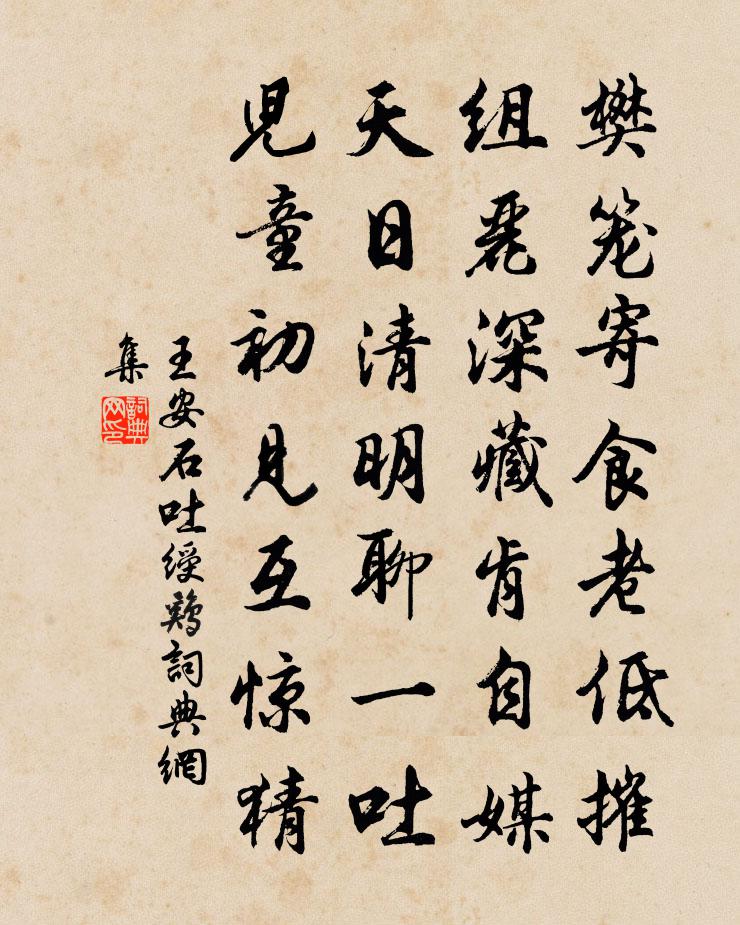 樊笼寄食老低摧
组丽深藏肯自媒
天日清明聊一吐
児童初见互惊猜
王安石吐绶鷄詞典網
集
詞典网印